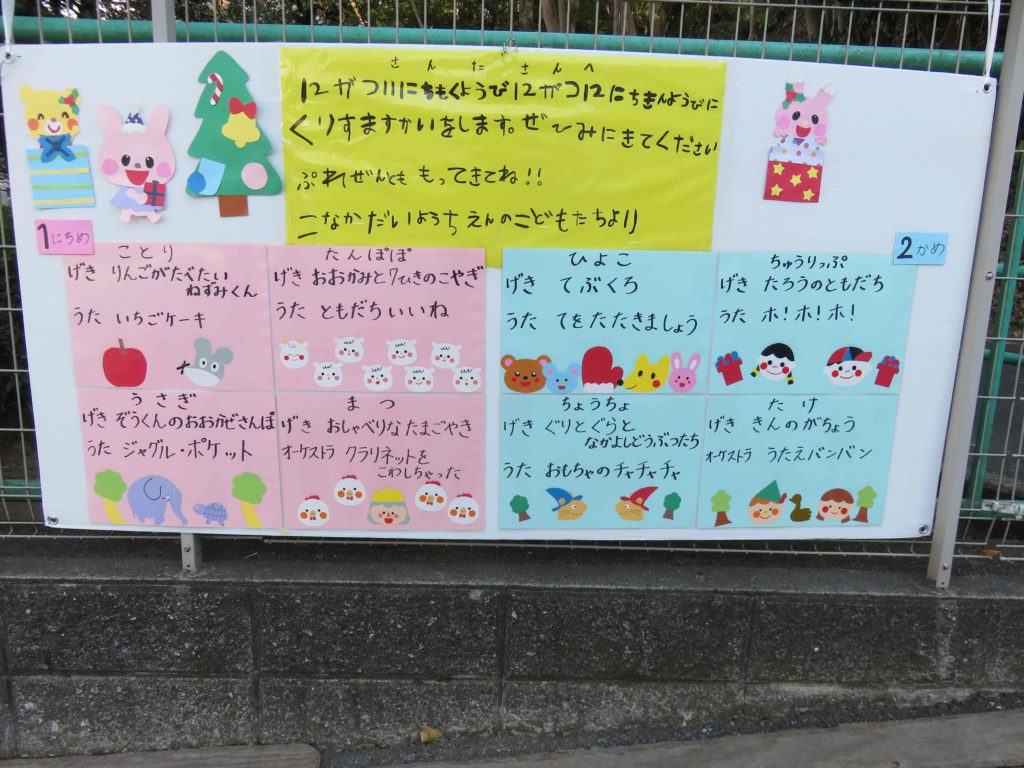 さんたさんへ
12がつ11にちもくようび12がつ12にちきんようびに
くりすますかいをします。ぜひみにきてください
ぷれぜんとも もってきてね!!
こなかだいようちえんのこどもたちより
1にちめ
ことり
げき りんごがたべたい
ねずみくん
うた いちごケーキ
たんぽぽ
げき おおかみと7ひきのこやぎ
うた ともだちいいね
うさぎ
げき ぞうくんのおおかぜさんぽ
うた ジャグル・ポケット
まつ
げき おしゃべりなたまごやき
オーケストラ クラリネットを
こわしちゃった
2かめ
ひよこ
げき てぶくろ
うた てをたたきましょう
ちゅうりっぷ
げき たろうのともだち
うた ホ!ホ!ホ!
ちょうちょ
げき ぐりとぐらと
なかよしどうぶつたち
うた おもちゃのチャチャチャ
たけ
げき きんのがちょう
オーケストラ うたえバンバン